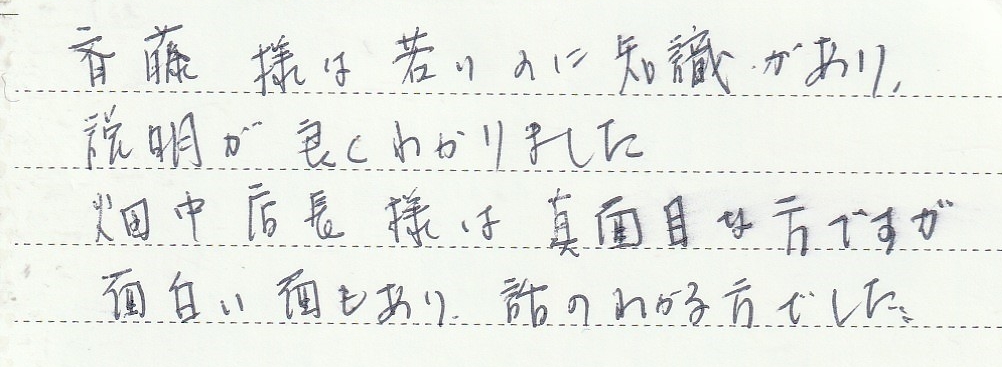 斉藤 様は若いのに知識があり、
説明が良くわかりました
畑中店長様は真面目な方ですが
面白い面もあり、話のわかる方でした。